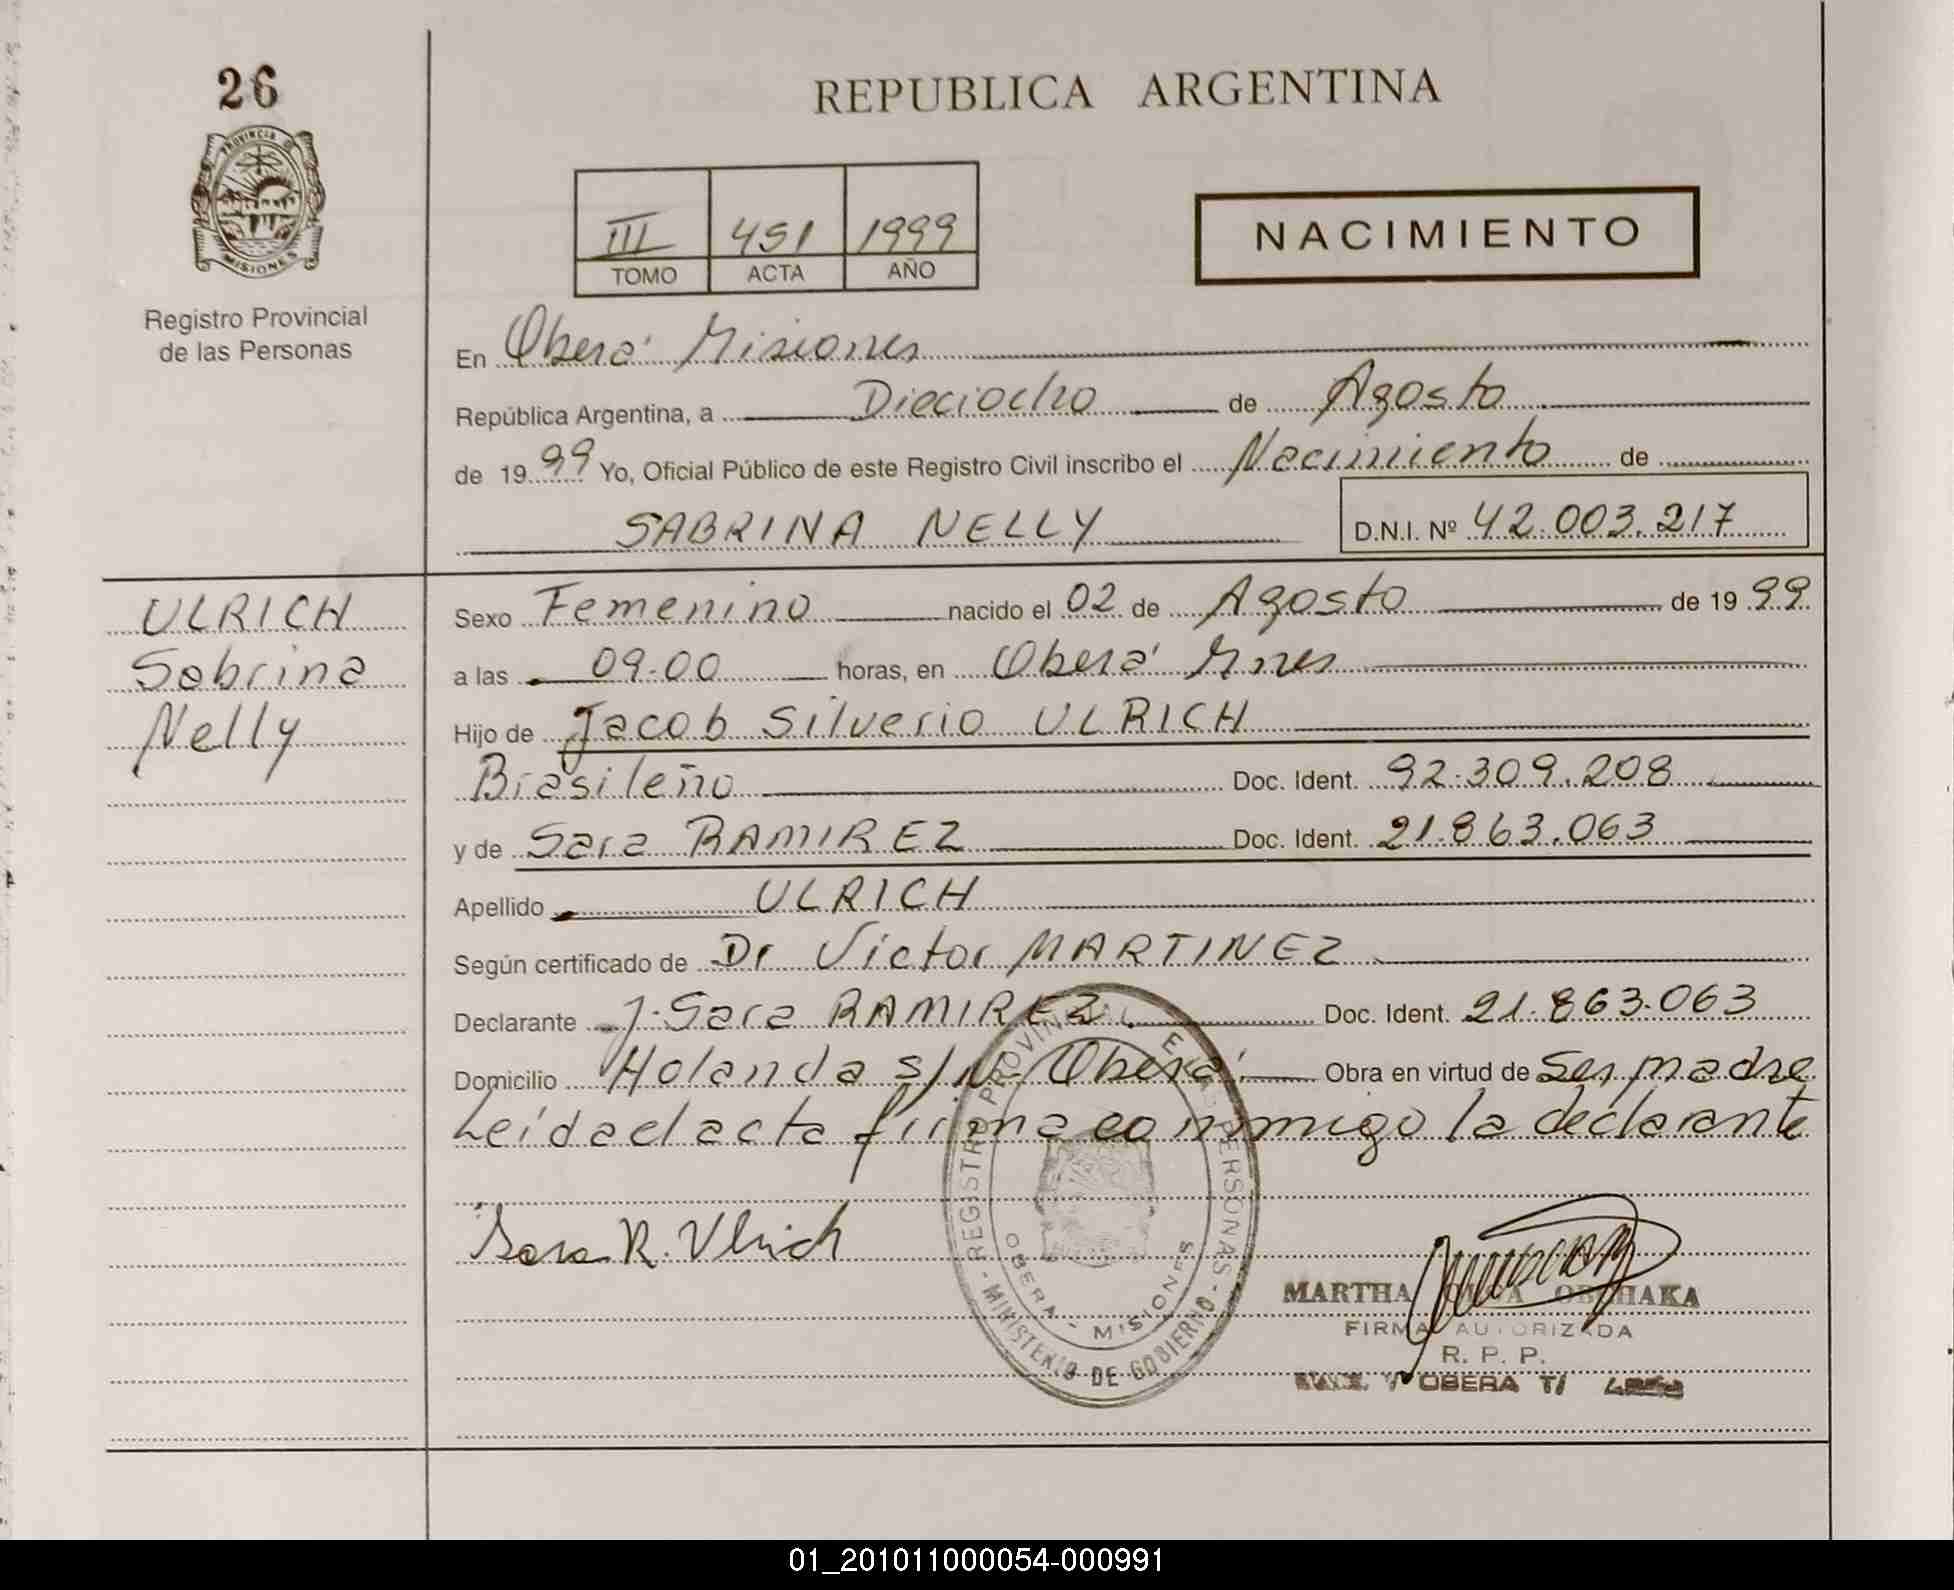 26
PROVINCIA D
MISIONES
Registro Provincial
de las Personas
REPUBLICA ARGENTINA
III 451 1999
TOMO ACTA AÑO
NACIMIENTO
En Oberá Misiones
República Argentina, a Dieciocho de Agosto
de 19 99 Yo, Oficial Público de este Registro Civil inscribo el Nacimiento de
SABRINA NELLY D.N.I. Nº 42.003.217
ULRICH
Sabrina
Nelly
Sexo Femenino nacido el 02 de Agosto de 19 99
a las 09.00 horas, en Oberá Mnes
Hijo de Jacob Silverio ULRICH
Brasileño Doc. Ident. 92.309.208
y de Sara RAMIREZ Doc. Ident. 21.863.063
Apellido ULRICH
Según certificado de Dr Victor MARTINEZ
Declarante Sara RAMIREZ Doc. Ident. 21.863.063
Domicilio Holanda s/Nº Oberá Obra en virtud de Ser madre
Leída el acta firma conmigo la declarante
Sara R. Ulrich
REGISTRO PROVINCIAL DE LAS PERSONAS
OBERA - MISIONES
- MINISTERIO DE GOBIERNO -
MARTHA
FIRMA AUTORIZADA
R. P. P.
OBERA
01_201011000054-000991